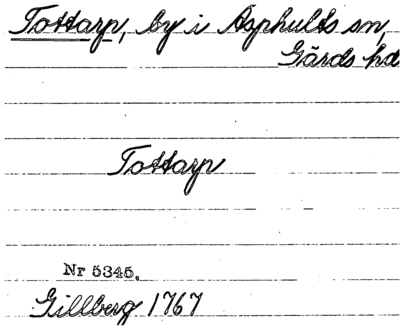 Tottarp, by i Asphults sn,
Gärds hd
Tottarp
Nr 5345.
Gillberg 1767